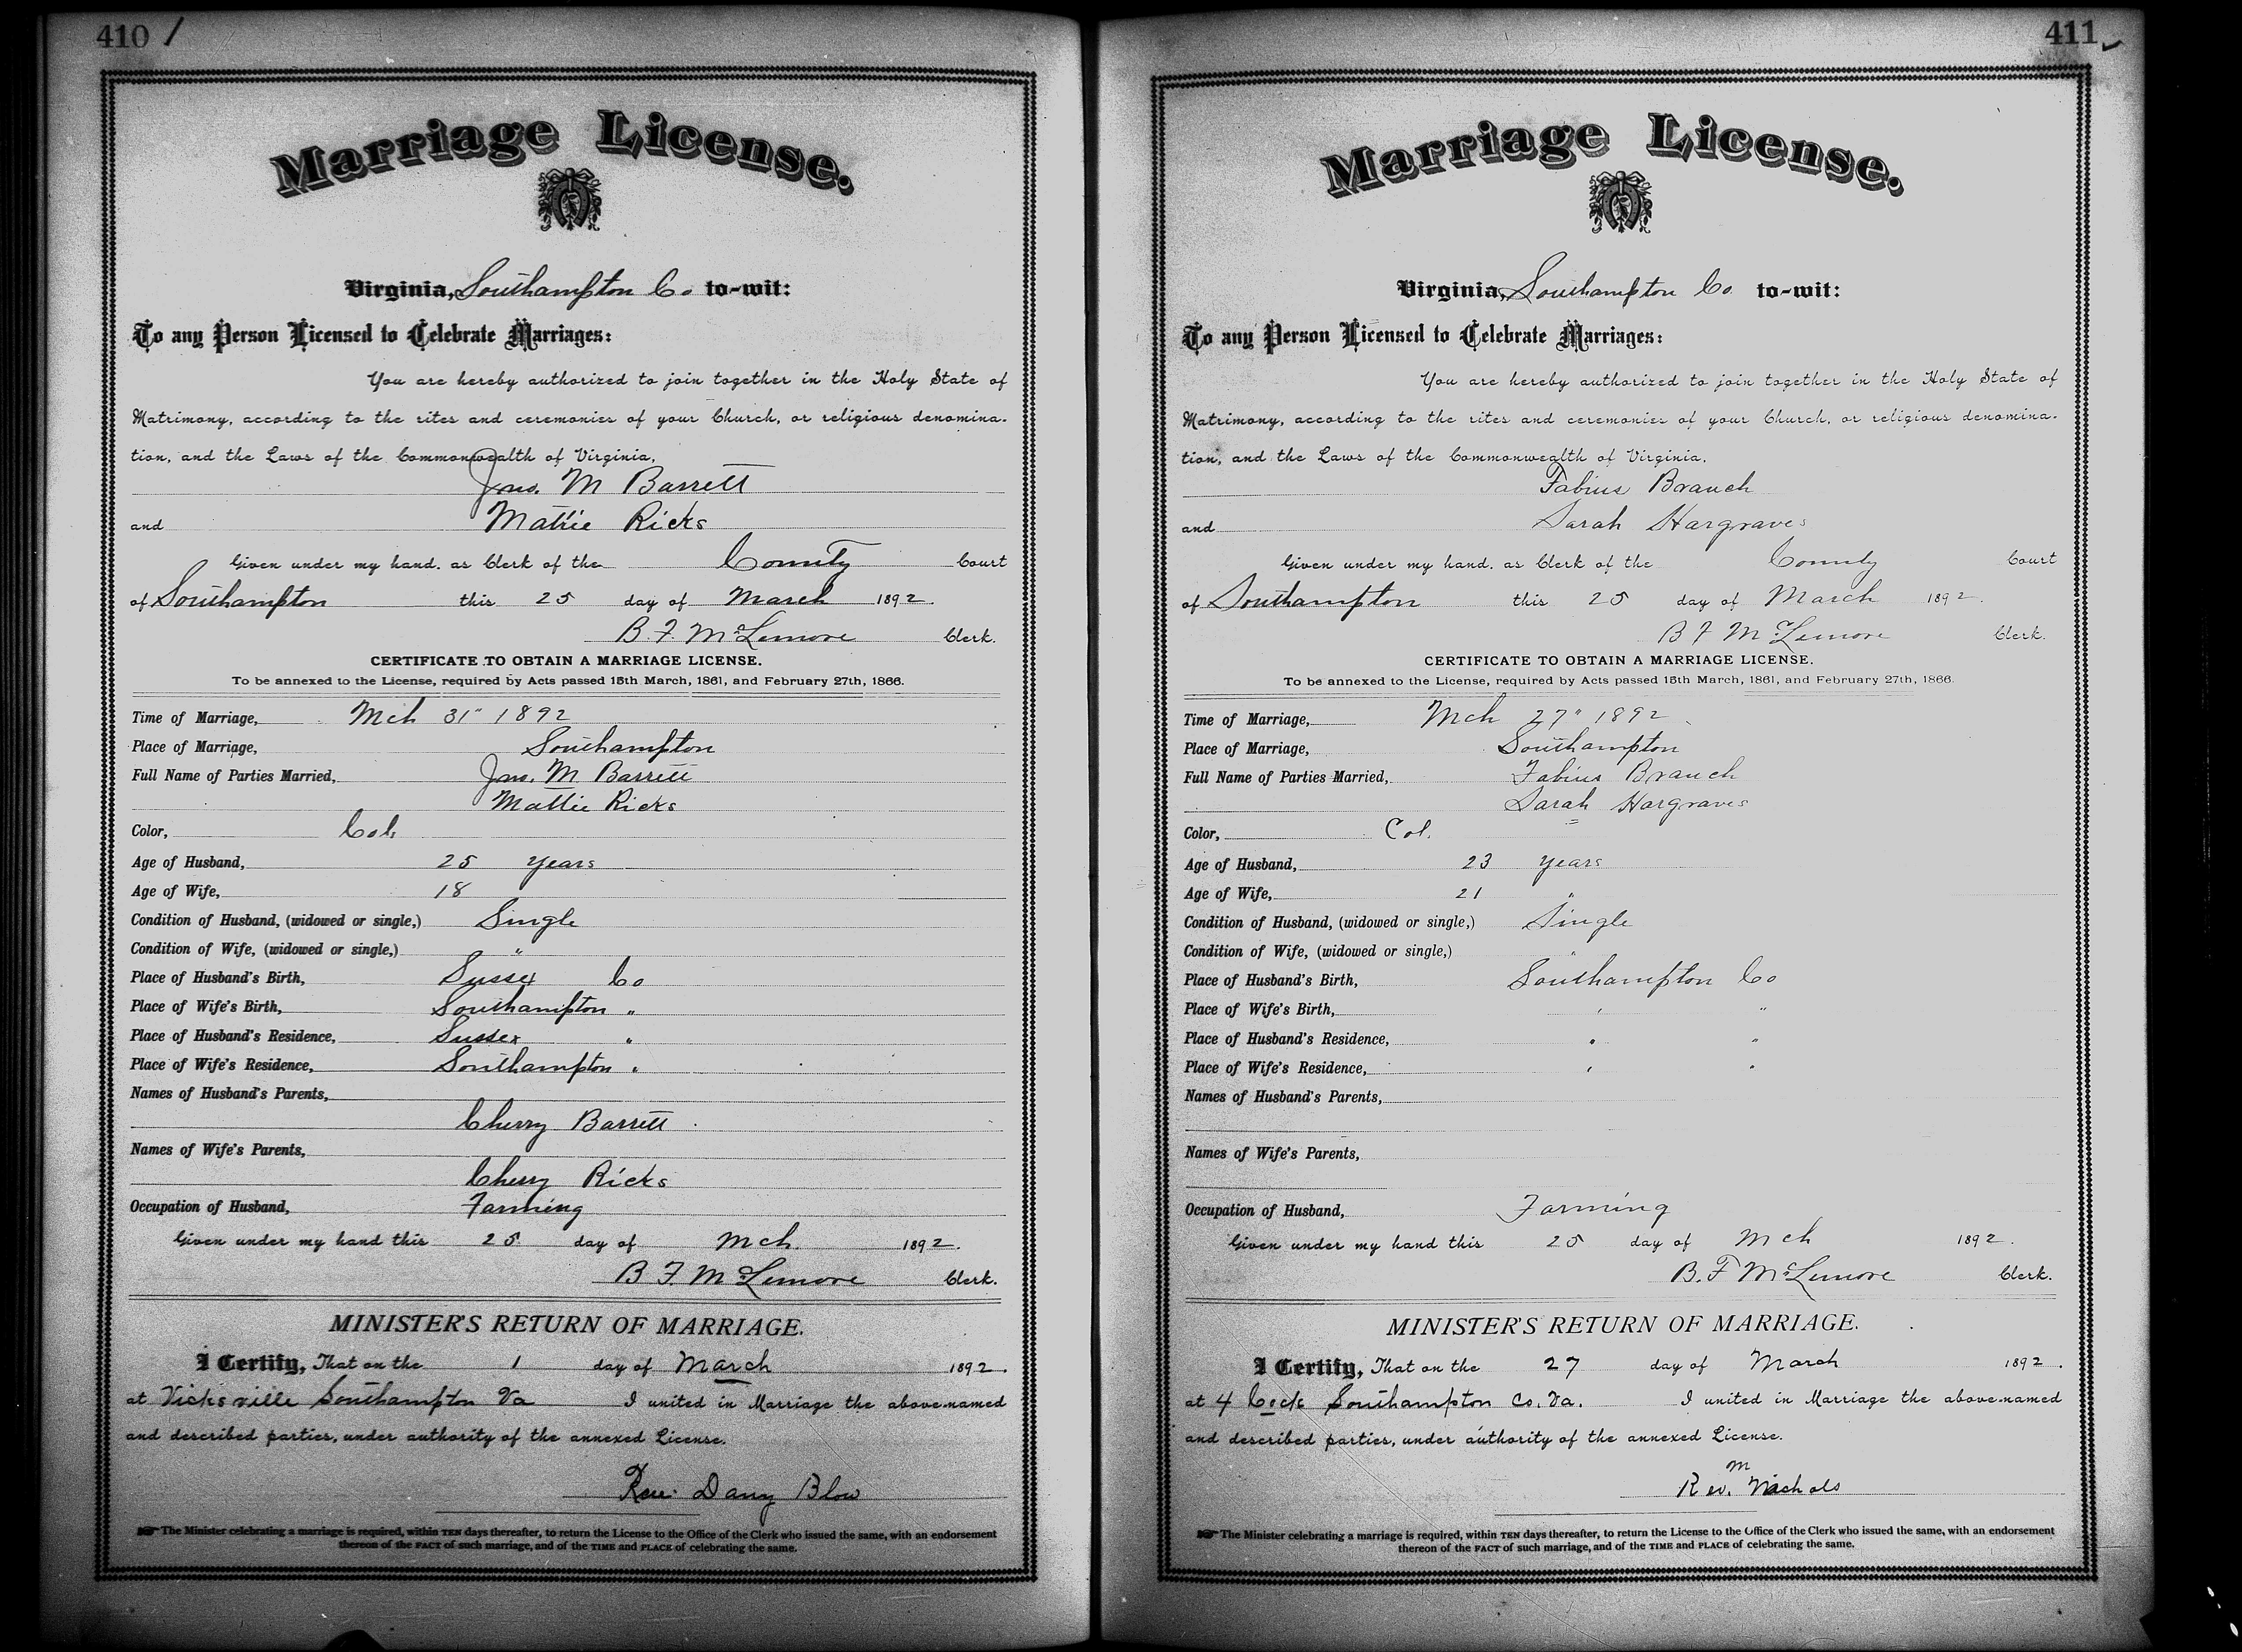 410 /
Marriage License.
Virginia, Southampton Co to-wit:
To any Person Licensed to Celebrate Marriages:
You are hereby authorized to join together in the Holy State of
Matrimony, according to the rites and ceremonies of your Church, or religious denomina-
tion, and the Laws of the Commonwealth of Virginia,
Jno. M Barrett
and Mattie Ricks
Given under my hand, as Clerk of the County Court
of Southampton this 25 day of March 1892.
B. F. McLemore Clerk.
CERTIFICATE TO OBTAIN A MARRIAGE LICENSE.
To be annexed to the License, required by Acts passed 15th March, 1861, and February 27th, 1866.
Time of Marriage, Mch 31" 1892
Place of Marriage, Southampton
Full Name of Parties Married, Jno. M Barrett
Mattie Ricks
Color, Col.
Age of Husband, 25 Years
Age of Wife, 18
Condition of Husband, (widowed or single,) Single
Condition of Wife, (widowed or single,) "
Place of Husband's Birth, Sussex Co
Place of Wife's Birth, Southampton "
Place of Husband's Residence, Sussex "
Place of Wife's Residence, Southampton "
Names of Husband's Parents,
Cherry Barrett
Names of Wife's Parents,
Cherry Ricks
Occupation of Husband, Farming
Given under my hand this 25 day of Mch. 1892.
B. F. McLemore Clerk.
MINISTER'S RETURN OF MARRIAGE.
I Certify, That on the 1 day of March 1892.
at Vicksville Southampton Va I united in Marriage the above-named
and described parties, under authority of the annexed License.
Rev. Dany Blow
The Minister celebrating a marriage is required, within TEN days thereafter, to return the License to the Office of the Clerk who issued the same, with an endorsement
thereon of the FACT of such marriage, and of the TIME and PLACE of celebrating the same.
411
Marriage License.
Virginia, Southampton Co to-wit:
To any Person Licensed to Celebrate Marriages:
You are hereby authorized to join together in the Holy State of
Matrimony, according to the rites and ceremonies of your Church, or religious denomina-
tion, and the Laws of the Commonwealth of Virginia,
Fabius Branch
and Sarah Hargraves
Given under my hand, as Clerk of the County Court
of Southampton this 25 day of March 1892.
B F McLemore Clerk.
CERTIFICATE TO OBTAIN A MARRIAGE LICENSE.
To be annexed to the License, required by Acts passed 15th March, 1861, and February 27th, 1866.
Time of Marriage, Mch 27" 1892
Place of Marriage, Southampton
Full Name of Parties Married, Fabius Branch
Sarah Hargraves
Color, Col.
Age of Husband, 23 Years
Age of Wife, 21 "
Condition of Husband, (widowed or single,) Single
Condition of Wife, (widowed or single,) "
Place of Husband's Birth, Southampton Co
Place of Wife's Birth, " "
Place of Husband's Residence, " "
Place of Wife's Residence, " "
Names of Husband's Parents,
Names of Wife's Parents,
Occupation of Husband, Farming
Given under my hand this 25 day of Mch 1892.
B. F McLemore Clerk.
MINISTER'S RETURN OF MARRIAGE.
I Certify, That on the 27 day of March 1892.
at 4 Cock Southampton Co. Va. I united in Marriage the above-named
and described parties, under authority of the annexed License.
Rev. M Nichols
The Minister celebrating a marriage is required, within TEN days thereafter, to return the License to the Office of the Clerk who issued the same, with an endorsement
thereon of the FACT of such marriage, and of the TIME and PLACE of celebrating the same.